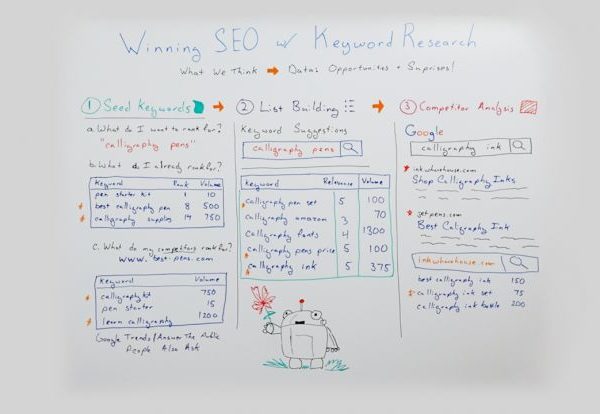 Winning SEO w/ Keyword Research
What We Think → Data: Opportunities + Suprises!
1 Seed Keywords
a. What do I want to rank for?
"calligraphy pens"
b. What do I already rank for?
Keyword Rank Volume
pen starter kit 1 10
best calligraphy pen 8 500
calligraphy supplies 14 750
c. What do my competitors rank for?
www.best-pens.com
Keyword Volume
calligraphy kit 750
pen starter 15
learn calligraphy 1200
Google Trends/Answer The Public
People Also Ask
2 List Building
Keyword Suggestions
calligraphy pens
Keyword Relevance Volume
calligraphy pen set 5 100
calligraphy amazon 3 70
calligraphy fonts 4 1300
calligraphy pens price 5 100
calligraphy ink 5 375
3 Competitor Analysis
Google
calligraphy ink
inkwharehouse.com
Shop Calligraphy Inks
getpens.com
Best Caligraphy Ink
inkwharehouse.com
best calligraphy ink 150
calligraphy ink set 75
calligraphy ink bottle 200